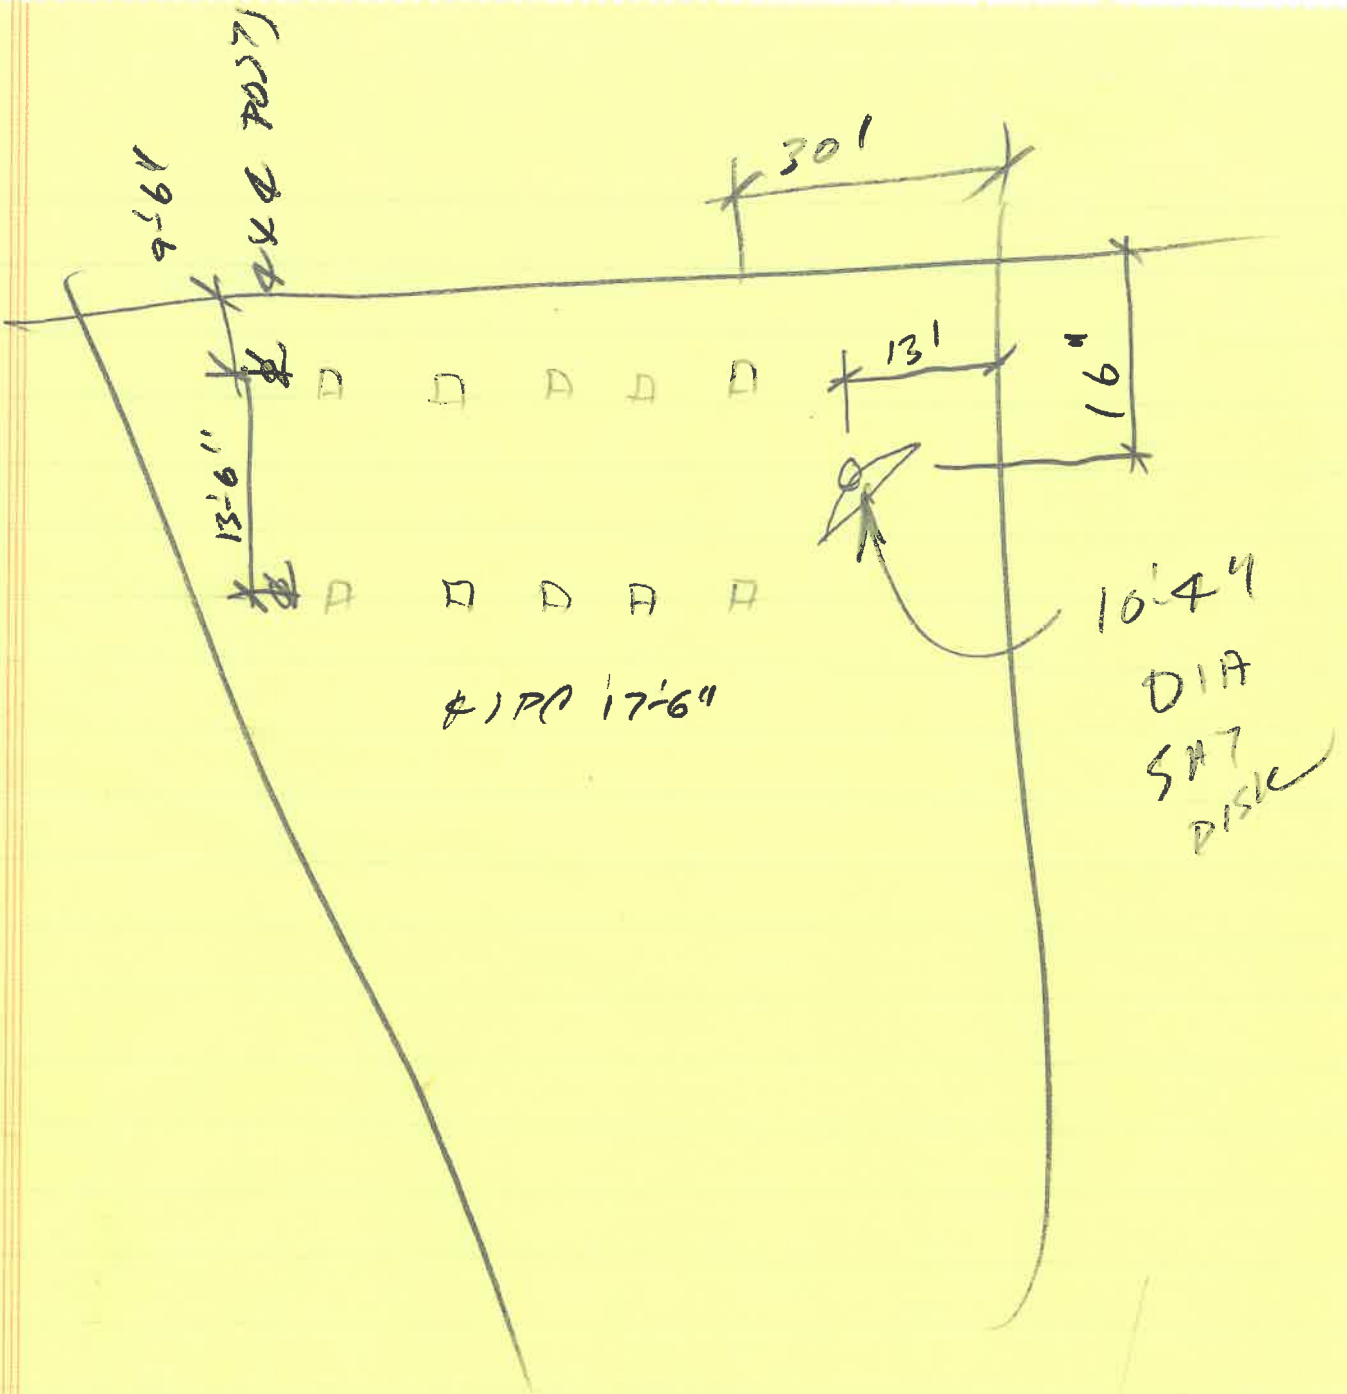 9'-6"
4x4 POSTS
30'
13'
16"
13'-6"
17'-6"
10'-4"
DIA
SAT
DISK